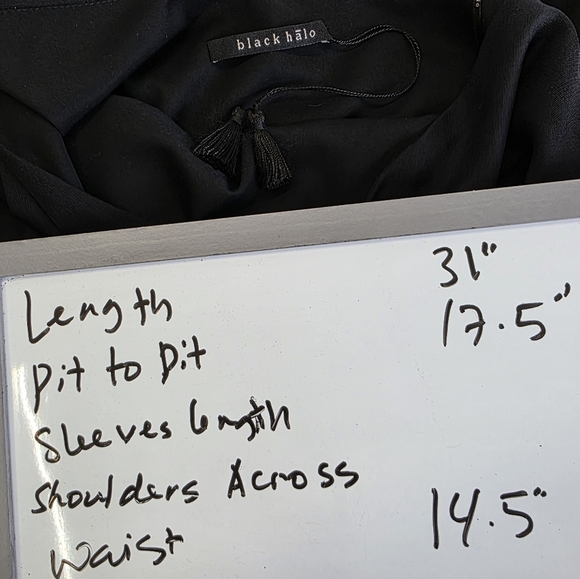 black hālo
Length 31"
Pit to Pit 17.5"
Sleeves length
Shoulders Across
Waist 14.5"